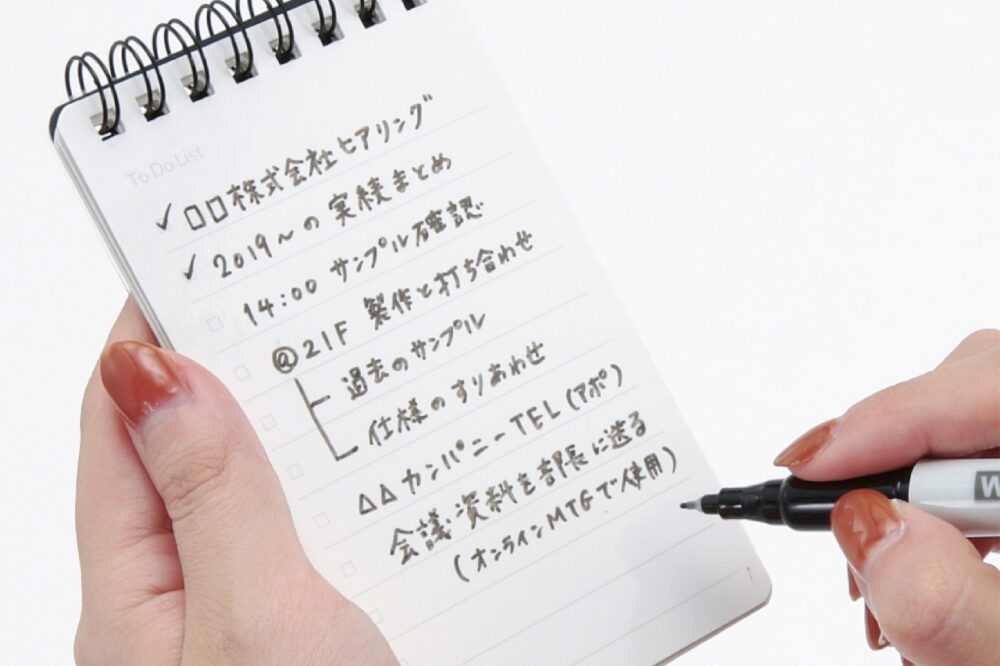 To Do List
✓ □□株式会社ヒアリング
✓ 2019〜の実績まとめ
14:00 サンプル確認
@21F 製作と打ち合わせ
過去のサンプル
仕様のすりあわせ
△△カンパニーTEL(アポ)
会議資料を部長に送る
(オンラインMTGで使用)
W